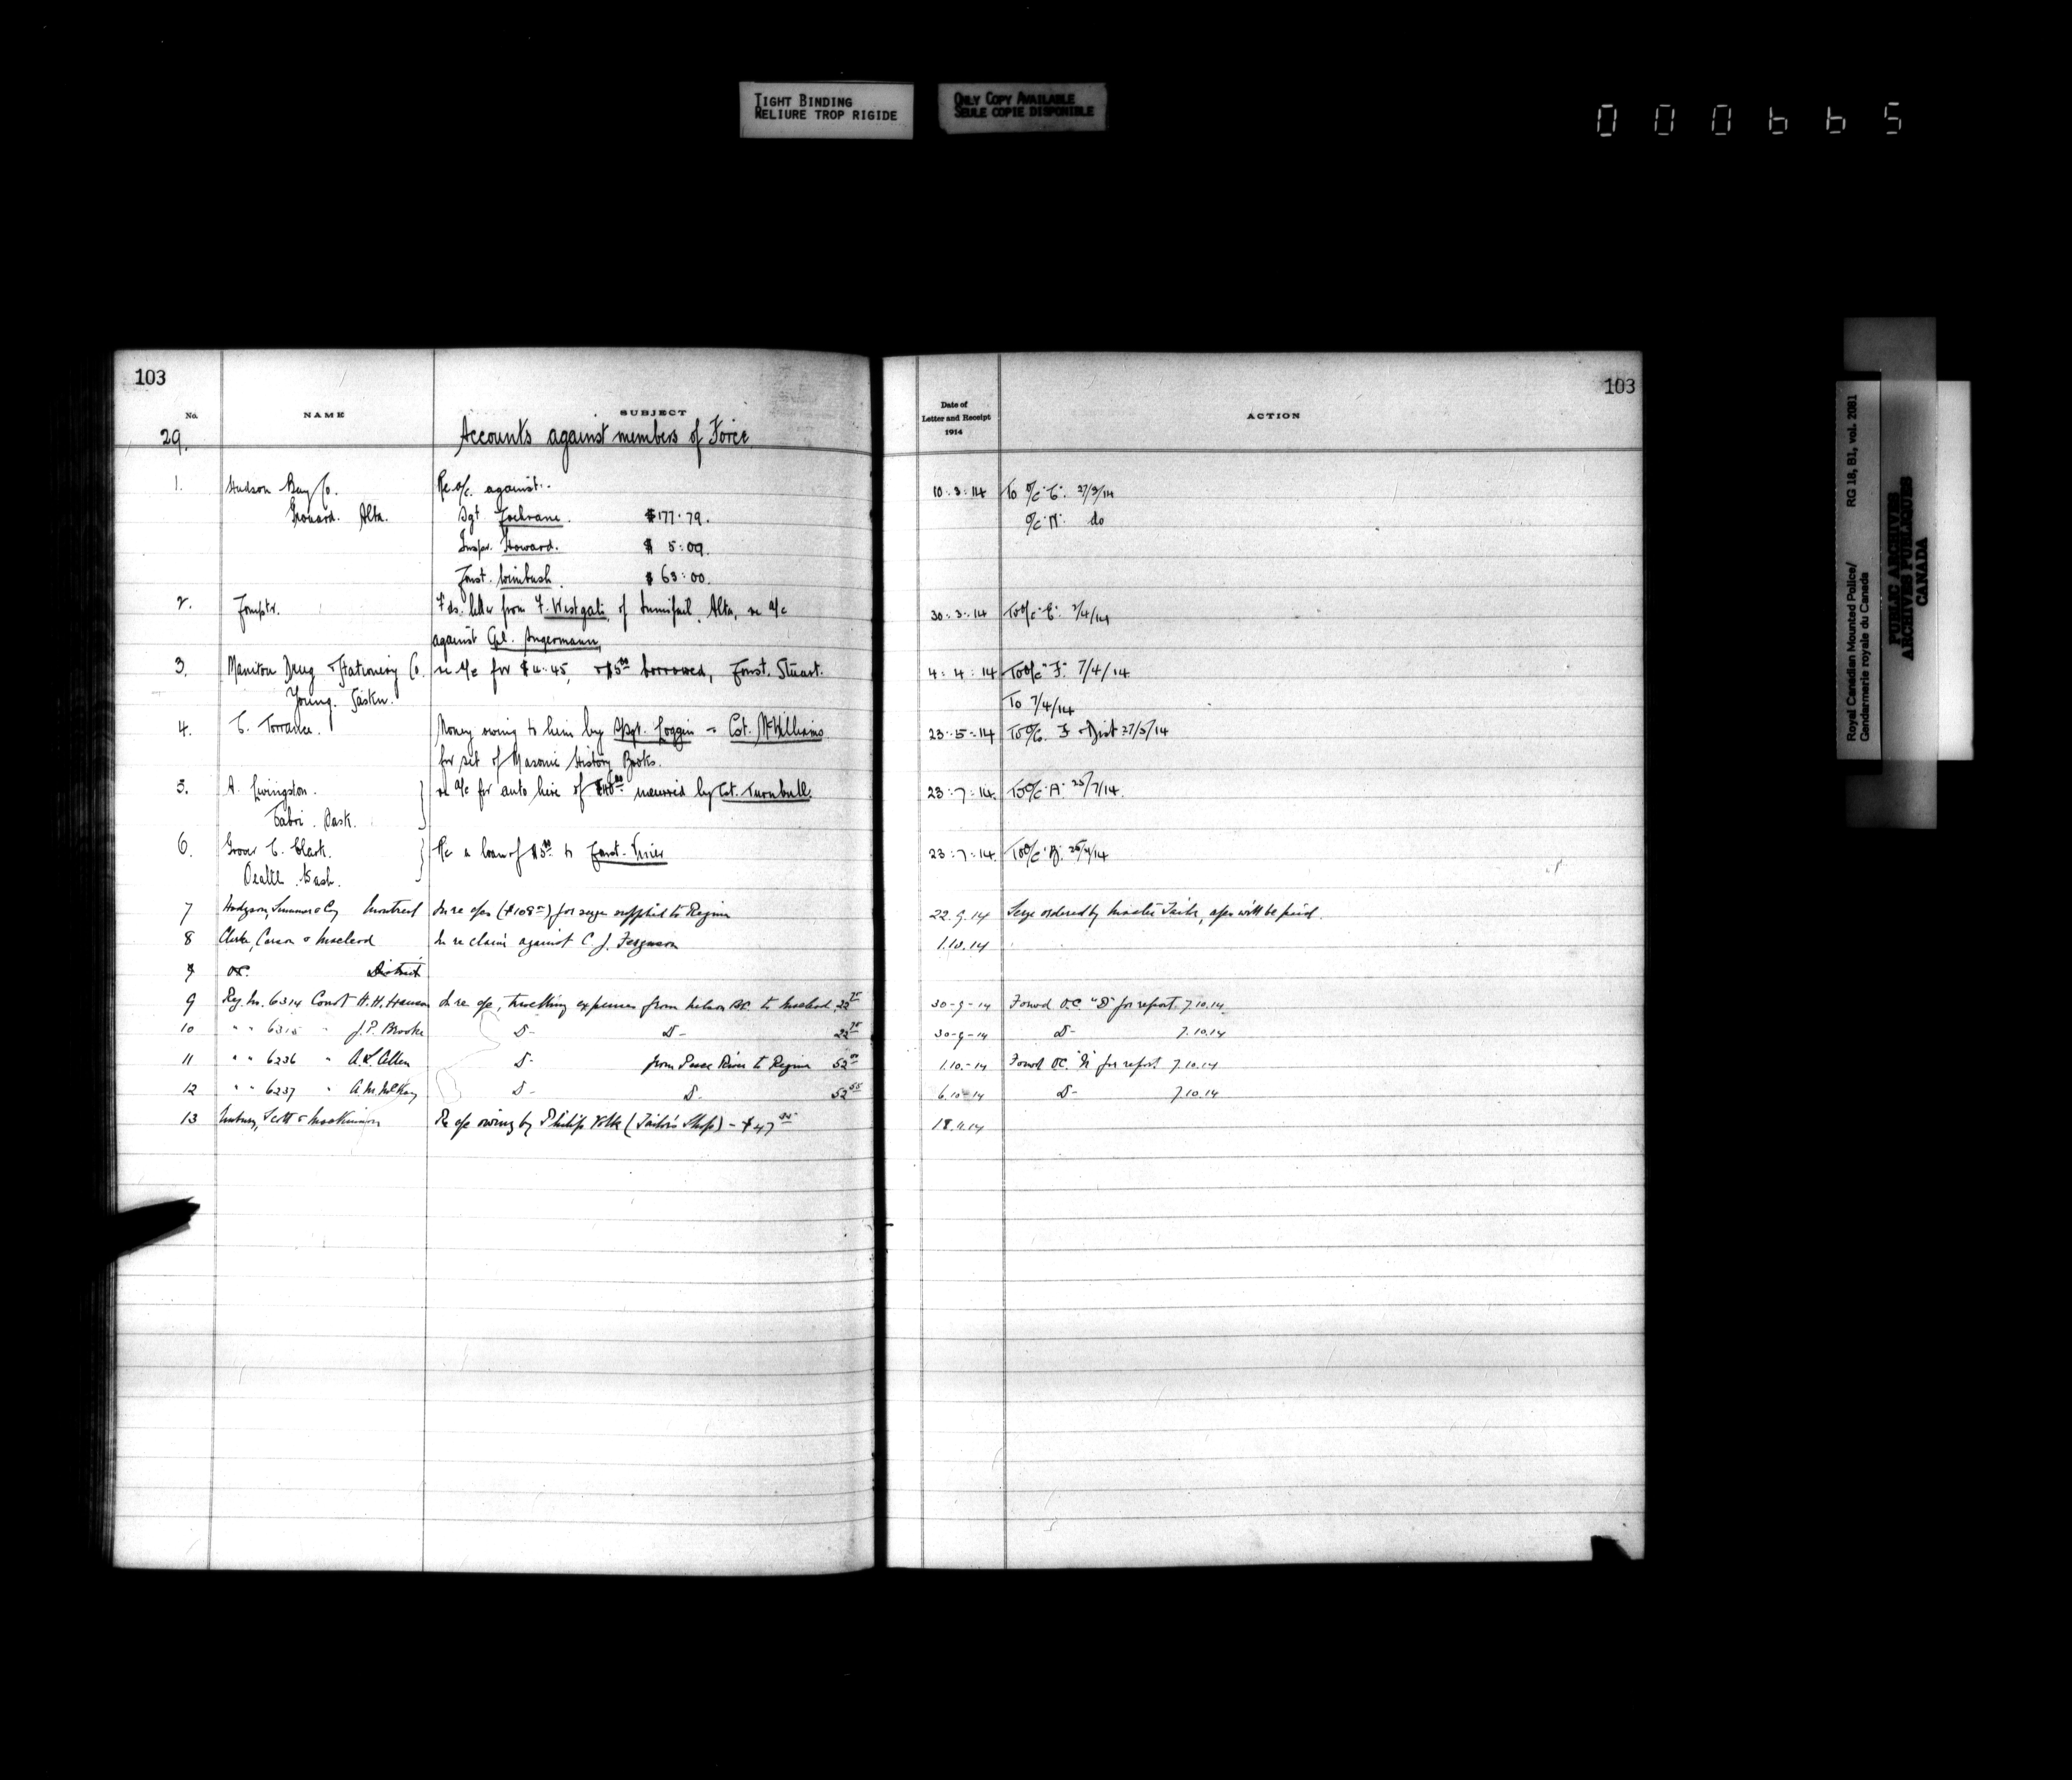 TIGHT BINDING
RELIURE TROP RIGIDE
ONLY COPY AVAILABLE
SEULE COPIE DISPONIBLE
000665
103
No. NAME SUBJECT
29. Accounts against members of Force
1. Hudson Bay Co. Re. a/c. against:-
Grouard. Alta. Sgt Cochrane. $177.79.
Inspr. Howard. $ 5:09.
Const. Wimbush. $ 63:00.
2. Comptr. Fds. letter from F. Westgate, of Innisfail, Alta, re a/c
against Cpl. Angermann,
3. Manitou Drug & Stationery Co. re a/c for $4.45, & $5 00 borrowed, Const. Stuart.
Young. Sask.
4. C. Torrance. Money owing to him by & Cst. McWilliams
for set of Masonic History Books.
5. A. Livingston. re a/c for auto hire of incurred by Cst. Turnbull.
Cabri. Sask.
6. Grover C. Clark. Re a loan of $5 00 to Const.
Seattle. Wash.
7 Hodgson, Sumner & Coy Montreal In re a/c ($108 ) for serge supplied to Regina
8 Clarke, Carson & Macleod In re claim against C. J. Ferguson
9 O.C. District
9 Reg. No. 6314 Const H. H. In re a/c, travelling expenses from Nelson B.C. to Macleod 22 75
10 " " 6315 " J. P. Brooke D- D- 22 75
11 " " 6236 " A. L. Allen D- from Peace River to Regina 52 00
12 " " 6237 " A. M. McKay D- D- 52 55
13 Scott & Mackinnon Re a/c owing by Philip Volk (Tailor's Shop) - $47
103
Date of
Letter and Receipt
1914
ACTION
10:3:14 To O/C "C". 27/3/14
O/C "N" do
30:3:14 To O/C "E" 2/4/14
4:4:14 To O/C "F". 7/4/14
To 7/4/14
23:5:14 To O/C. F Dist 27/5/14
23:7:14. To O/C "A" 25/7/14.
23:7:14. To O/C 25/7/14
22.9.14 Serge ordered by Master Tailor, a/c will be paid.
1.10.14
30-9-14 Forwd O.C. "D" for report. 7.10.14
30-9-14 D- 7.10.14
1.10-14 Forwd O.C. "N" for report 7.10.14
6.10-14 D- 7.10.14
18.11.14
Royal Canadian Mounted Police/ RG 18, B1, vol. 2081
Gendarmerie royale du Canada
PUBLIC ARCHIVES
ARCHIVES PUBLIQUES
CANADA